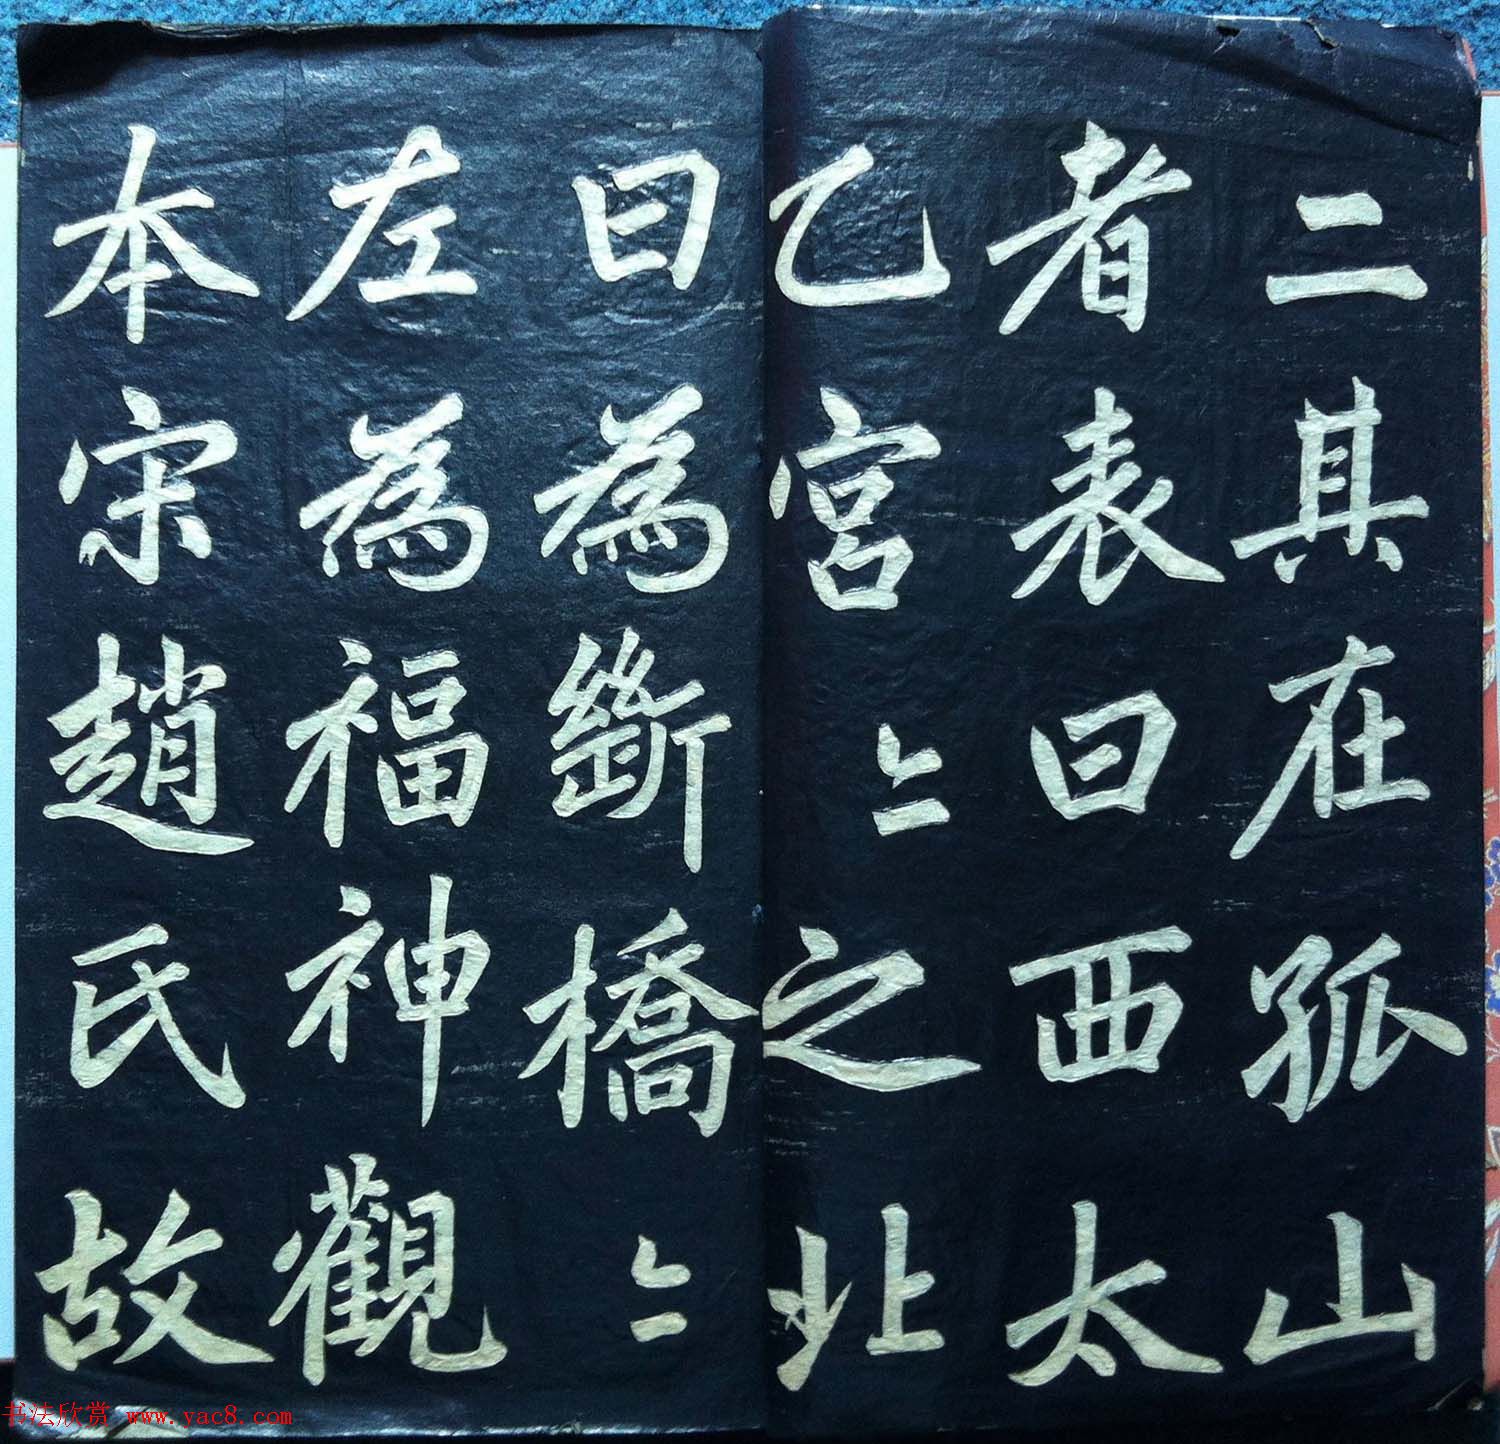 二其在孤山
者表曰西太
乙宮〻之北
曰為斷橋〻
左為福神觀
本宋趙氏故
书法欣赏 www.yac8.com